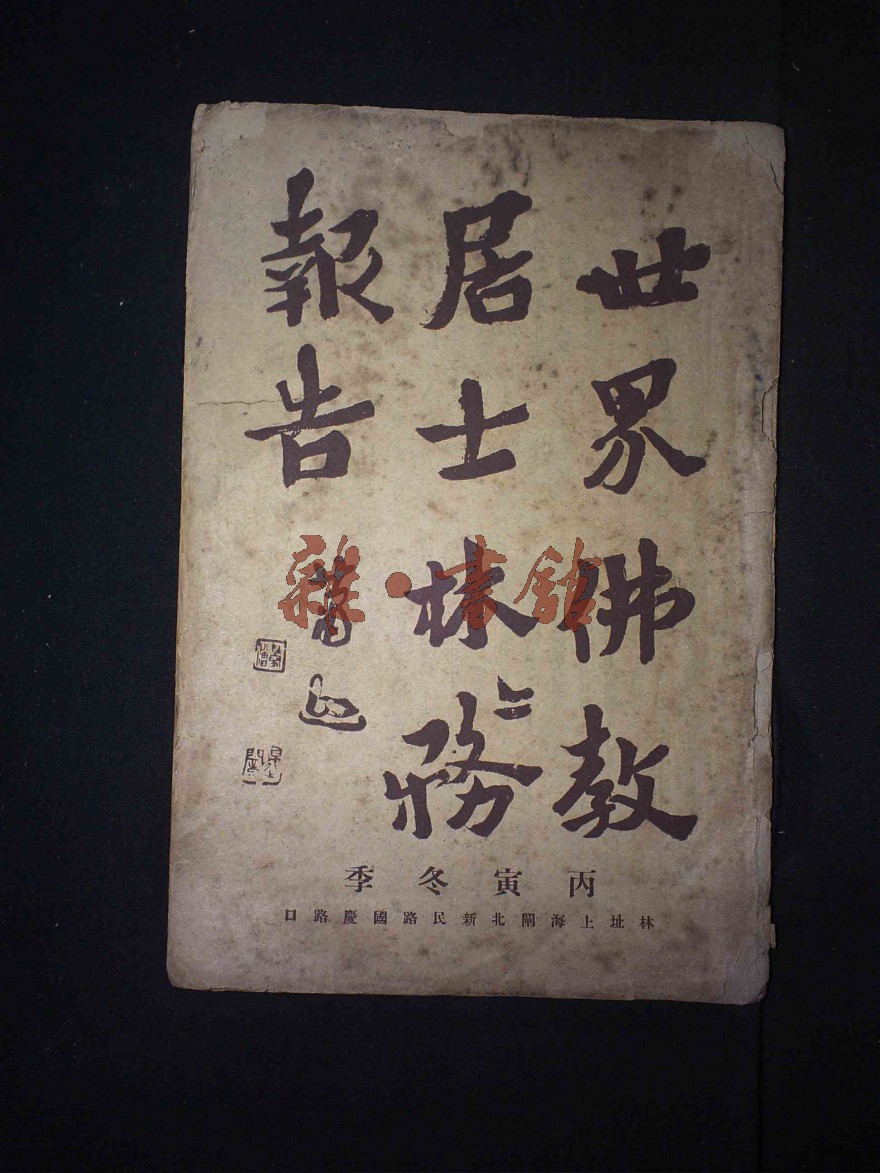 世界佛教
居士林〻務
報告
雜·書館
丙寅冬季
林址上海閘北新民路國慶路口